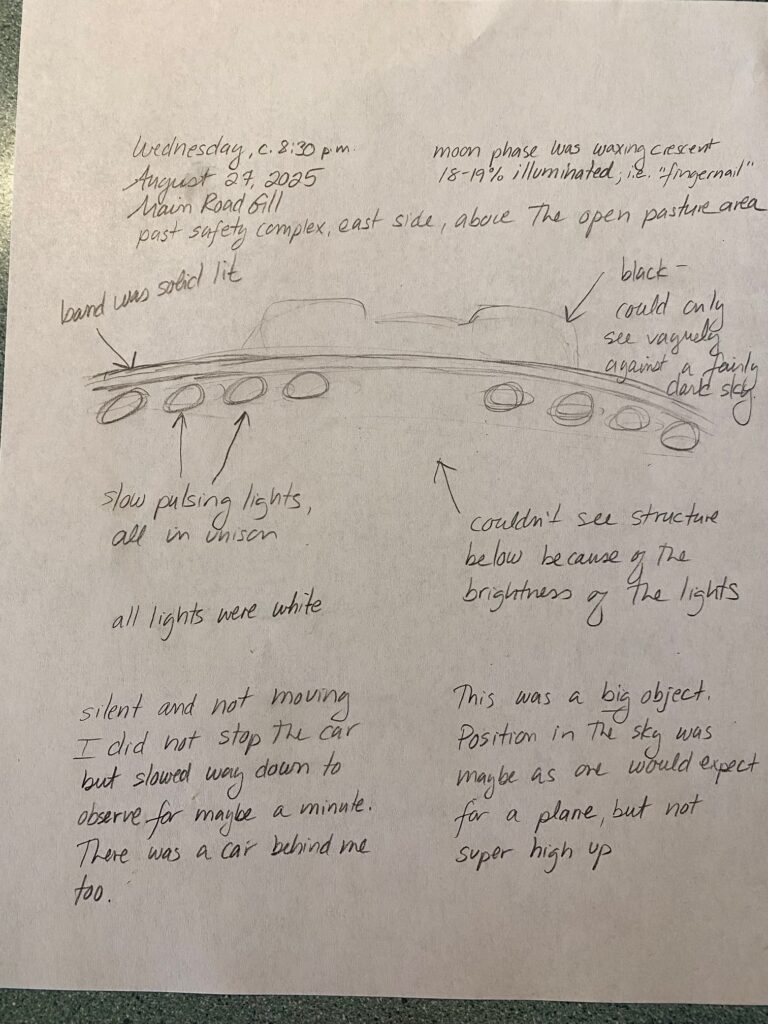 Wednesday, c. 8:30 p.m.
August 27, 2025
Main Road Gill
past safety complex, east side, above the open pasture area
moon phase was waxing crescent
18-19% illuminated, i.e. "fingernail"
band was solid lit
black -
could only
see vaguely
against a fairly
dark sky.
slow pulsing lights,
all in unison
couldn't see structure
below because of the
brightness of the lights
all lights were white
silent and not moving
I did not stop the car
but slowed way down to
observe for maybe a minute.
There was a car behind me
too.
This was a big object.
Position in the sky was
maybe as one would expect
for a plane, but not
super high up